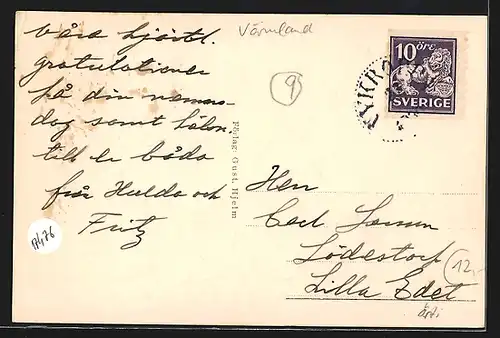 Våra hjärtl.
gratulationer
på din namns-
dag samt hälsn.
till er båda
från Hulda och
Fritz
Värmland
9
10 ÖRE
SVERIGE
Förlag: Gust. Hjelm
Herr
Carl
Lödestorp
Lilla Edet
12,-